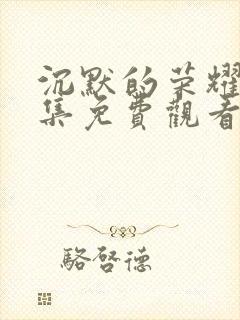 沉默的荣耀
集免費觀看
駱啓德